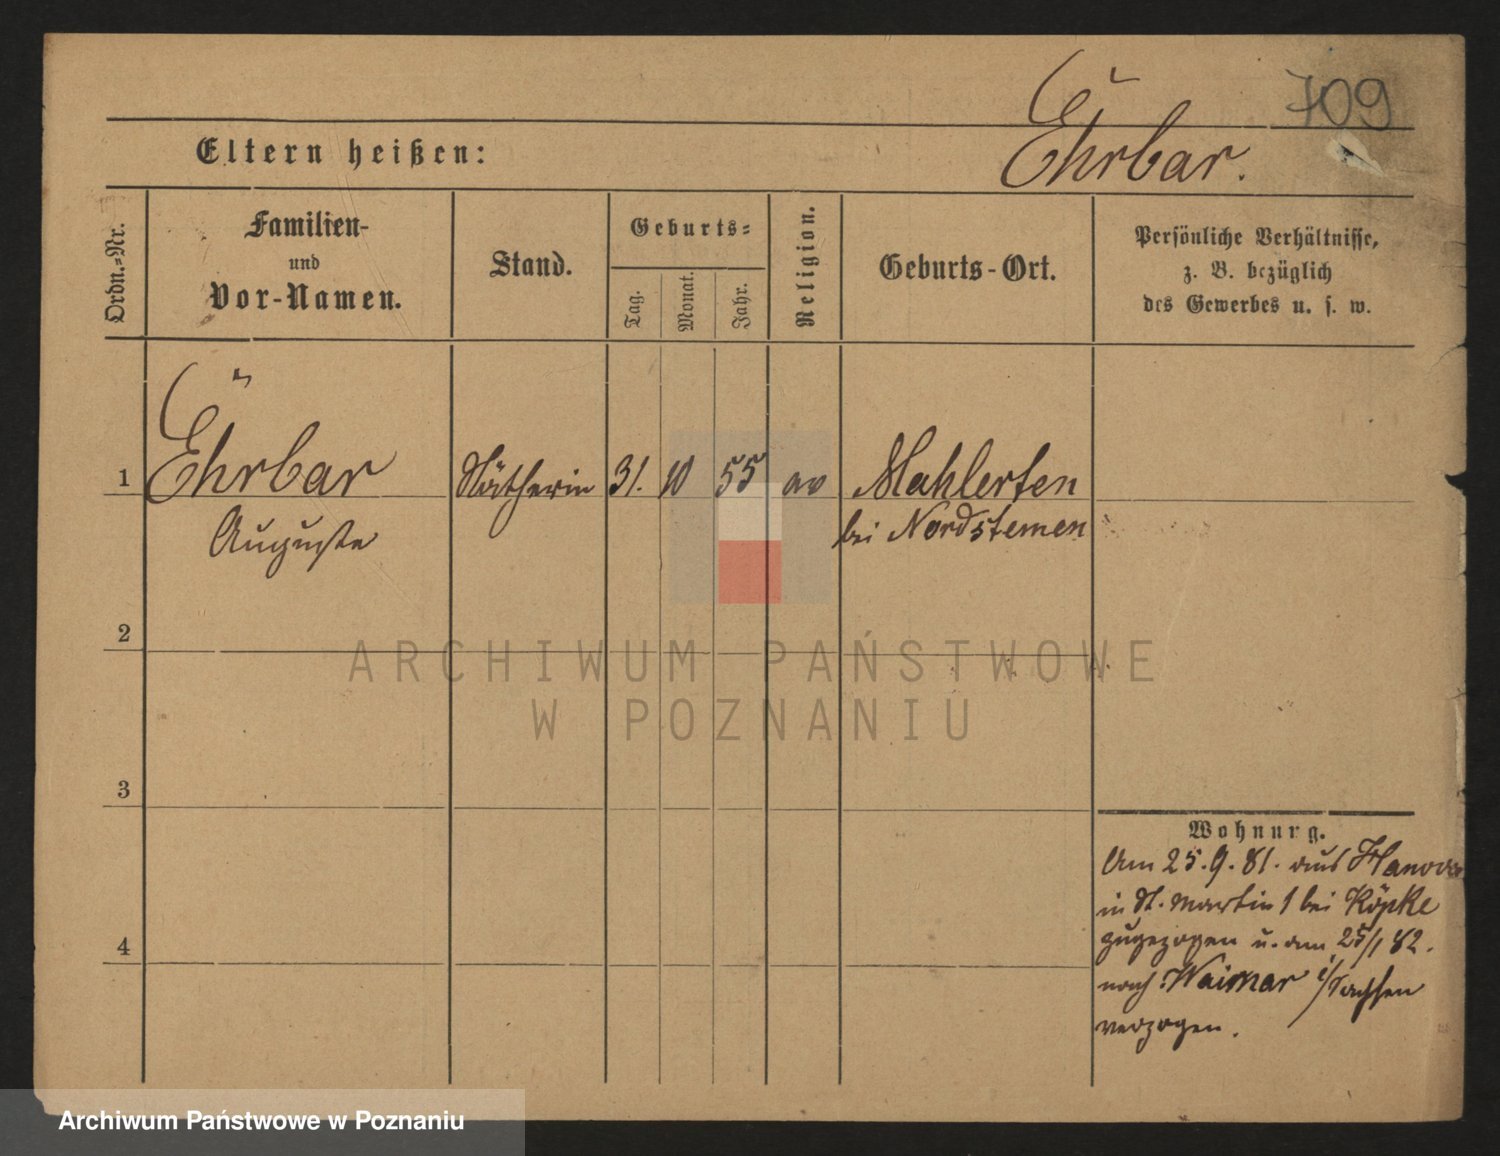 709
Ehrbar.
Eltern heißen:
Ordn.-Nr.
Familien-
und
Vor-Namen.
Stand.
Geburts-
Tag.
Monat.
Jahr.
Religion.
Geburts-Ort.
Persönliche Verhältnisse,
z. B. bezüglich
des Gewerbes u. s. w.
1 Ehrbar Nätherin 31. 10 55 ev Mahlerten
Auguste bei Nordstemen
2
3
4
Wohnung.
Am 25.9.81. aus Hanover
in St. Martin 1 bei Köpke
zugezogen u. am 25/1 82.
nach Waimar i/Sachsen
verzogen.
ARCHIWUM PAŃSTWOWE
W POZNANIU
Archiwum Państwowe w Poznaniu